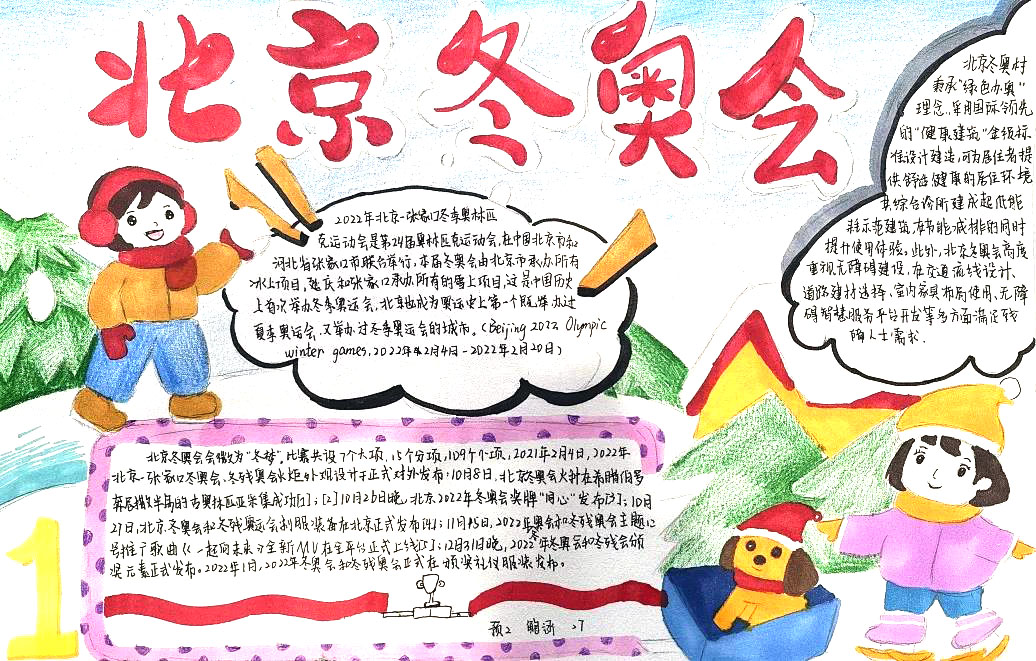 北京冬奥会
2022年北京-张家口冬季奥林匹
克运动会是第24届奥林匹克运动会,在中国北京市和
河北省张家口市联合举行,本届冬奥会由北京市承办所有
冰上项目,延庆和张家口承办所有的雪上项目,这是中国历史
上首次举办冬季奥运会,北京也成为奥运史上第一个既举办过
夏季奥运会,又举办过冬季奥运会的城市。(Beijing 2022 Olympic
winter games,2022年2月4日-2022年2月20日)
北京冬奥村
秉承"绿色办奥"
理念,采用国际领先
的"健康建筑"金级标
准设计建造,可为居住者提
供舒适健康的居住环境
其综合诊所建成超低能
耗示范建筑,在节能减排的同时
提升使用体验。此外,北京冬奥会高度
重视无障碍建设,在交通流线设计、
道路建材选择、室内家具布局使用、无障
碍智慧服务平台开发等多方面满足残
障人士需求.
北京冬奥会会徽为"冬梦",比赛共设7个大项,15个分项,109个小项,2021年2月4日,2022年
北京-张家口冬奥会、冬残奥会火炬外观设计正式对外发布;10月8日,北京冬奥会火种在希腊伯罗
奔尼撒半岛的古奥林匹亚采集成功[1];[2]10月26日晚,北京2022年冬奥会奖牌"同心"发布[3];10月
27日,北京冬奥会和冬残奥运会制服装备在北京正式发布[4];11月15日,2022年冬奥会和冬残奥会主题口
号推广歌曲《一起向未来》全新MV在全平台正式上线[5];12月31日晚,2022年冬奥会和冬残会颁
奖元素正式发布。2022年1月,2022年冬奥会和冬残奥会正式在颁奖礼仪服装发布。
1
预2 27